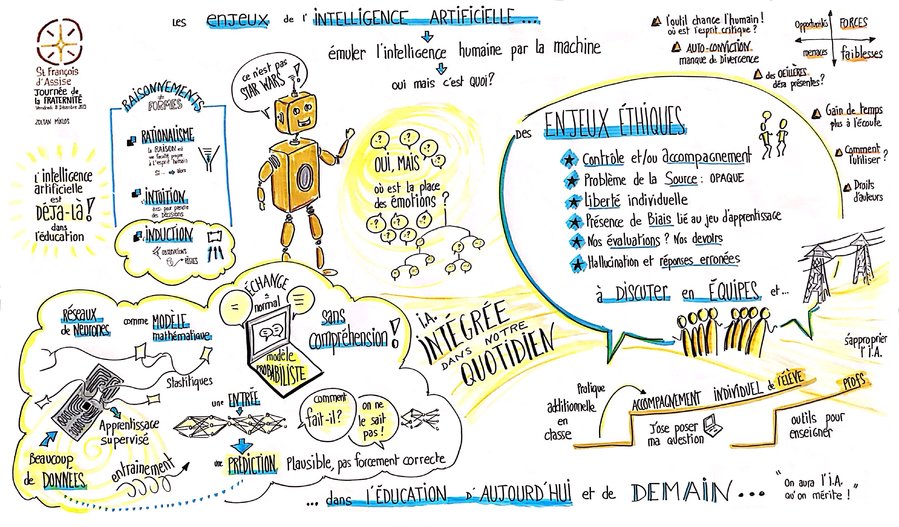 LES ENJEUX de l'INTELLIGENCE ARTIFICIELLE...
émuler l'intelligence humaine par la machine
oui mais c'est quoi?
St François
d'Assise
Journée de
la FRATERNITÉ
ZOLTAN MIKLOS
L'intelligence
artificielle
est
DÉJÀ-LÀ!
dans
l'éducation
RAISONNEMENTS
de
FORMES
RATIONALISME
la RAISON est
une faculté propre
à l'esprit humain
INTUITION
INDUCTION
ce n'est pas
STAR WARS!
OUI, MAIS
où est la place
des émotions?
l'outil chance l'humain!
où est l'esprit critique?
AUTO-CONVICTION
manque de divergence
des OEILLÈRES
déjà présentes?
Opportunités
FORCES
menaces
faiblesses
Gain de temps
plus à l'écoute
Comment
l'utiliser?
Droits
d'auteurs
DES ENJEUX ÉTHIQUES
Contrôle et/ou accompagnement
Problème de la Source: OPAQUE
Liberté individuelle
Présence de Biais lié au jeu d'apprentissage
Nos évaluations? Nos devoirs
Hallucination et réponses erronées
à DISCUTER en ÉQUIPES et...
réseaux
de Neurones
comme MODÈLE
mathématique
Stastifiques
Apprentissage
supervisé
Beaucoup
de DONNÉES
entrainement
ÉCHANGE
=
normal
modèle
PROBABILISTE
sans
compréhension!
une ENTRÉE
une PRÉDICTION
Plausible, pas forcement correcte
comment
fait-il?
on ne
le sait
pas!
i.A.
INTÉGRÉE
DANS NOTRE
QUOTIDIEN
s'approprier
l'i.A.
Pratique
additionnelle
en
classe
ACCOMPAGNEMENT INDIVIDUEL de l'ÉLÈVE
J'ose poser
ma question
PROFS
outils pour
enseigner
... dans L'ÉDUCATION D'AUJOURD'HUI et de DEMAIN...
"On aura l'i.A.
qu'on mérite!"